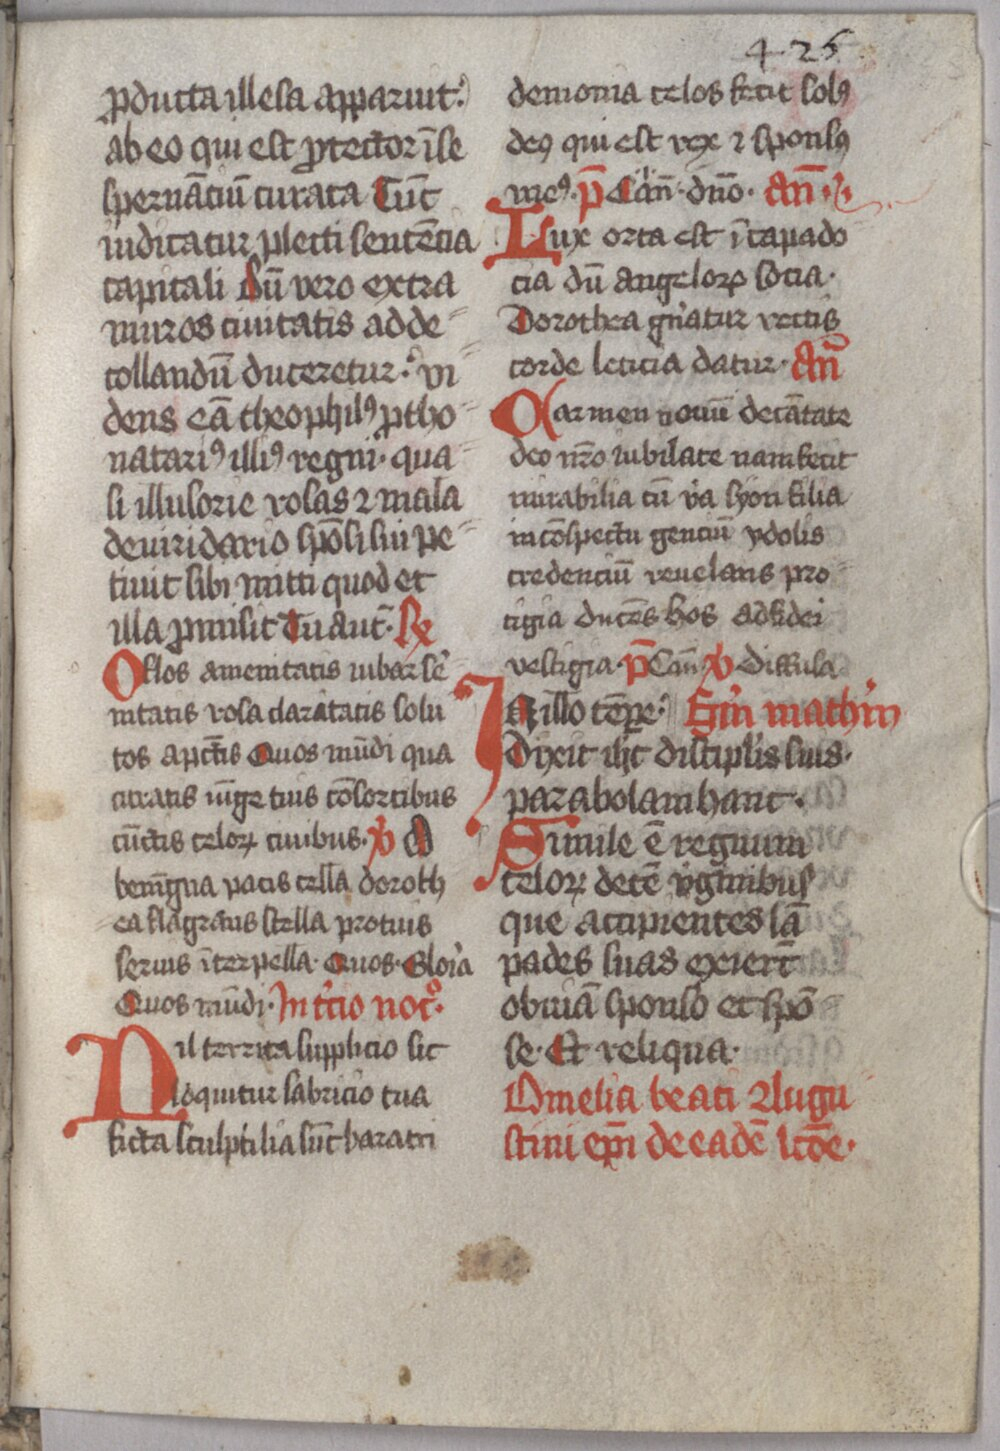 425
p̱ducta illesa apparuit.
ab eo qui est ꝓtector ī se
spernātiū curata Tūc
iudicatur plecti sentēcia
capitali Dū vero extra
muros ciuitatis ad de
collandū duceretur. vi
dens eā theophilꝰ ꝓtho
notariꝰ illiꝰ regni. qua
si illusorie rosas ⁊ mala
de viridario spōsi sui pe
tiuit sibi mitti quod et
illa ꝓmisit Tu aut̄. R̷
O flos amenitatis iubar sē
nitatis rosa claritatis solu
tos ap̱ctīs Quos mūdi qua
citratis iūge tuis cōsortibus
cūctis celoꝝ ciuibus. v̷ O
benīgna pacis cella doroth
ea flagrans stella pro tuis
seruis īterpella. Quos. Gloria
Quos mūdi. In t̄cio nocͦ.
Nil territa supplicio sic
loquitur fabricio tua
ficta sculptilia sūt baratri
demonia celos fecit solꝰ
deꝰ qui est rex ⁊ sponsꝰ
meꝰ. p̄ Cān̄. dn̄o. an̄.
Lux orta est ī capado
cia dū angeloꝝ socia.
Dorothea gn̄atur rectis
corde leticia datur. an̄
Carmen nouū decātate
deo nr̄o iubilate nam fecit
mirabilia cū v̄a syon filia
in cōspectu genciū ydolis
credenciū reuelans pro
tigia ducēs hos ad fidei
vestigia. p̄ Can̄ v̷ Diffusa
In illo tēpe. Sm̄ mathm̄
Dixit ih̄c discipl̄is suis.
parabolam hanc.
Simile ē regnum
celoꝝ decē v̄ginibus
que accipientes lā
pades suas exiert̄
obuiā sponso et spō
se. Et reliqua.
Omelia beati Augu
stini ep̄i de eadē lc̄ōe.